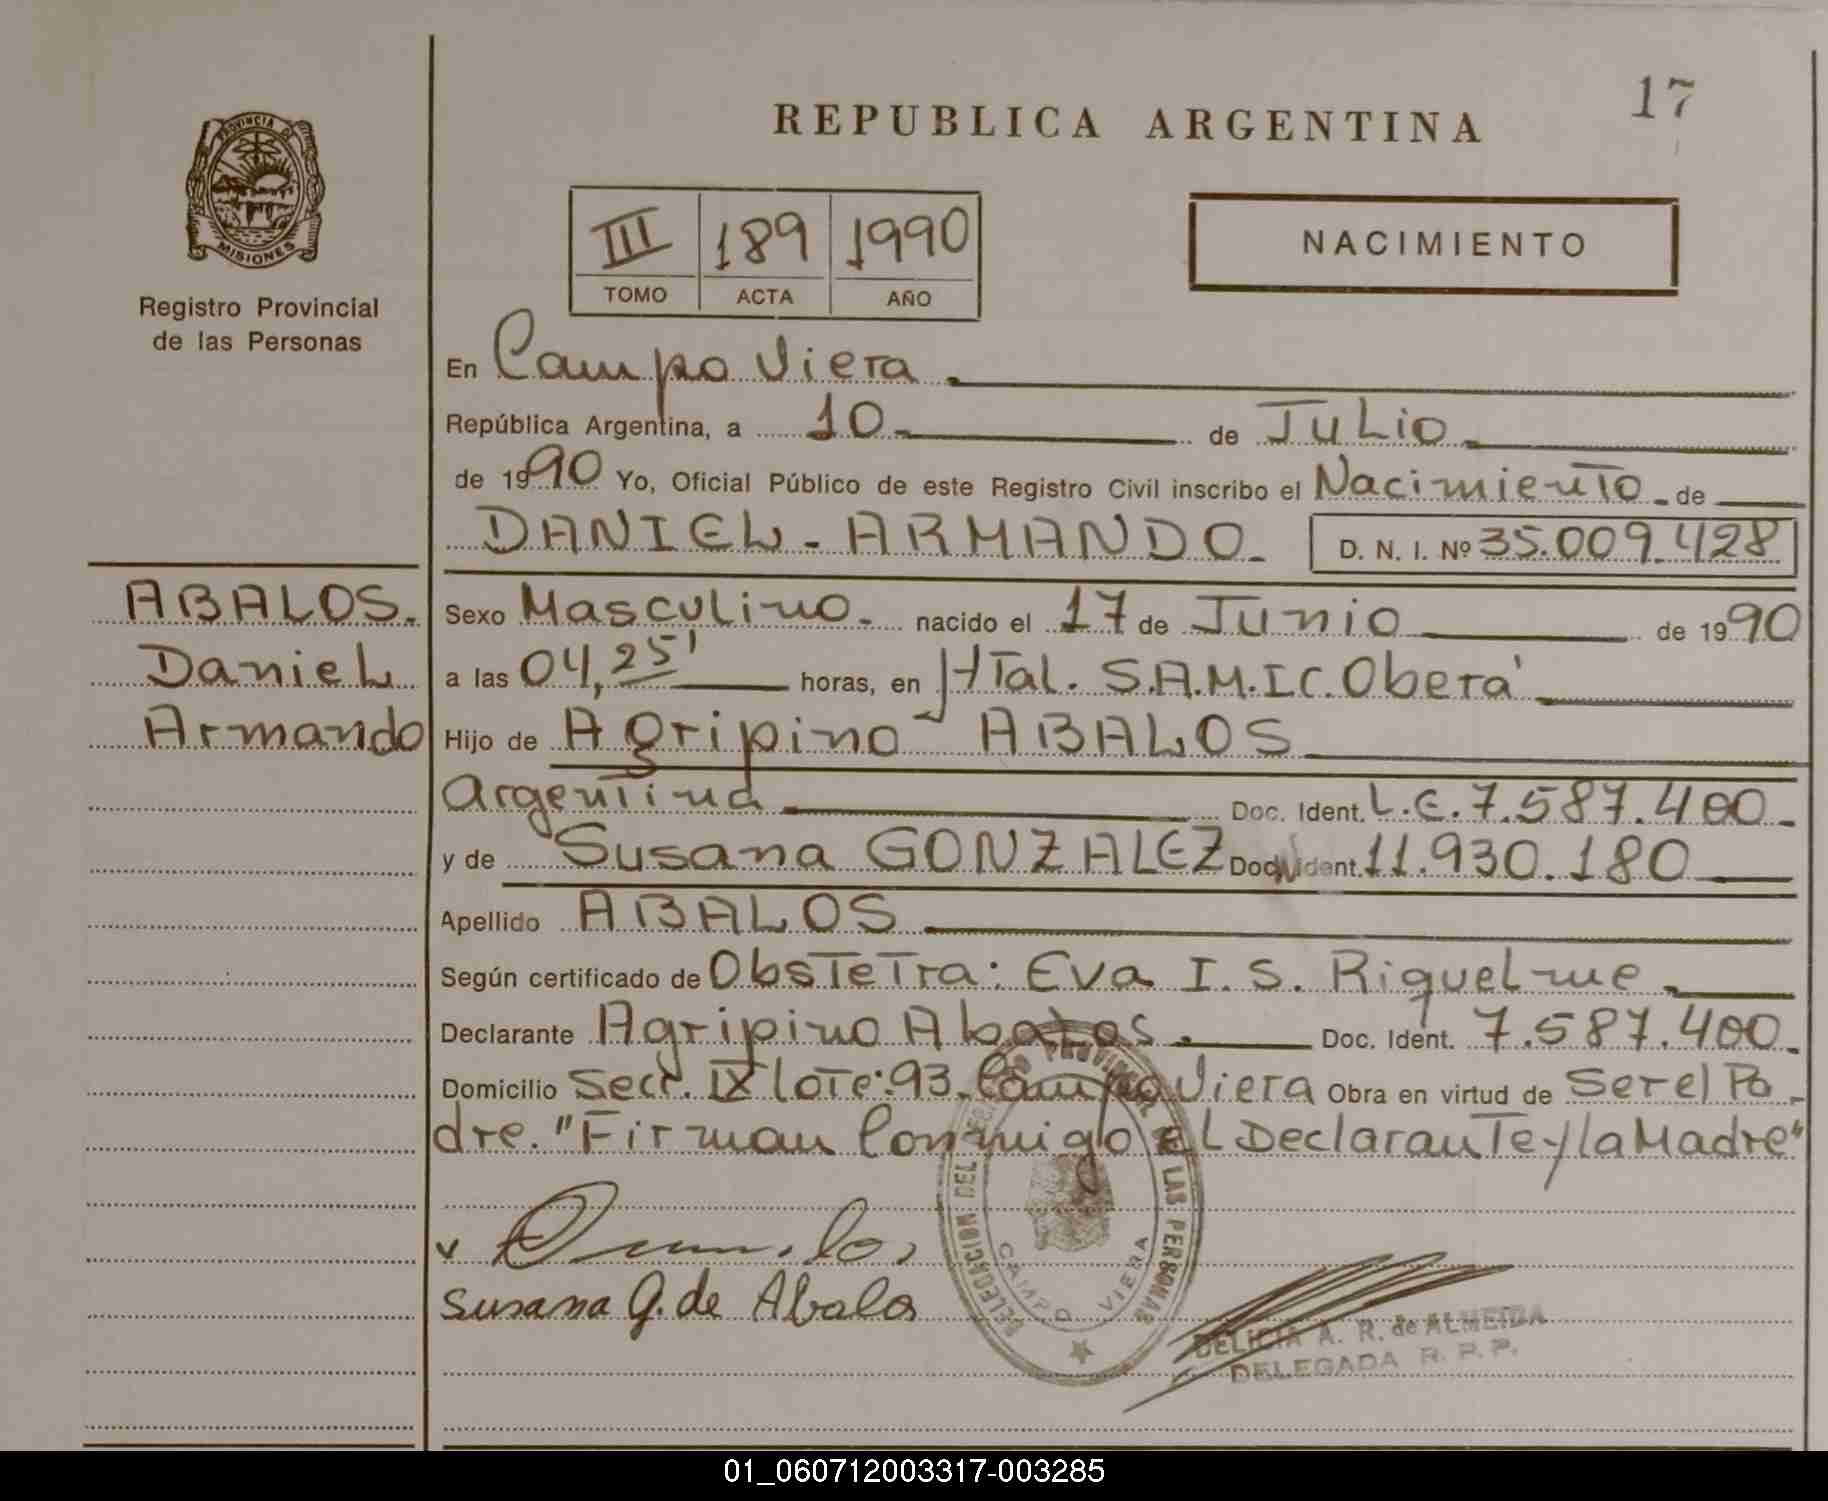 17
REPUBLICA ARGENTINA
PROVINCIA DE
MISIONES
Registro Provincial
de las Personas
III 189 1990
TOMO ACTA AÑO
NACIMIENTO
En Campo Viera
República Argentina, a 10 de Julio
de 1990 Yo, Oficial Público de este Registro Civil inscribo el Nacimiento de
DANIEL - ARMANDO D. N. I. Nº 35.009.428
ABALOS.
Daniel
Armando
Sexo Masculino nacido el 17 de Junio de 1990
a las 04,25' horas, en Htal. S.A.M.IC. Oberá
Hijo de Agripino ABALOS
Argentina Doc. Ident. L.E. 7.587.400
y de Susana GONZALEZ Doc. Ident. 11.930.180
Apellido ABALOS
Según certificado de Obstetra: Eva I. S. Riquelme
Declarante Agripino Abalos. Doc. Ident. 7.587.400
Domicilio Secc. IX lote: 93. Campo Viera Obra en virtud de Ser el Pa-
dre. "Firman Conmigo el Declarante y la Madre"
Susana G. de Abalos
DELEGACION DEL REGISTRO PROVINCIAL DE LAS PERSONAS
CAMPO VIERA
DELICIA A. R. de ALMEIDA
DELEGADA R. P. P.
01_060712003317-003285